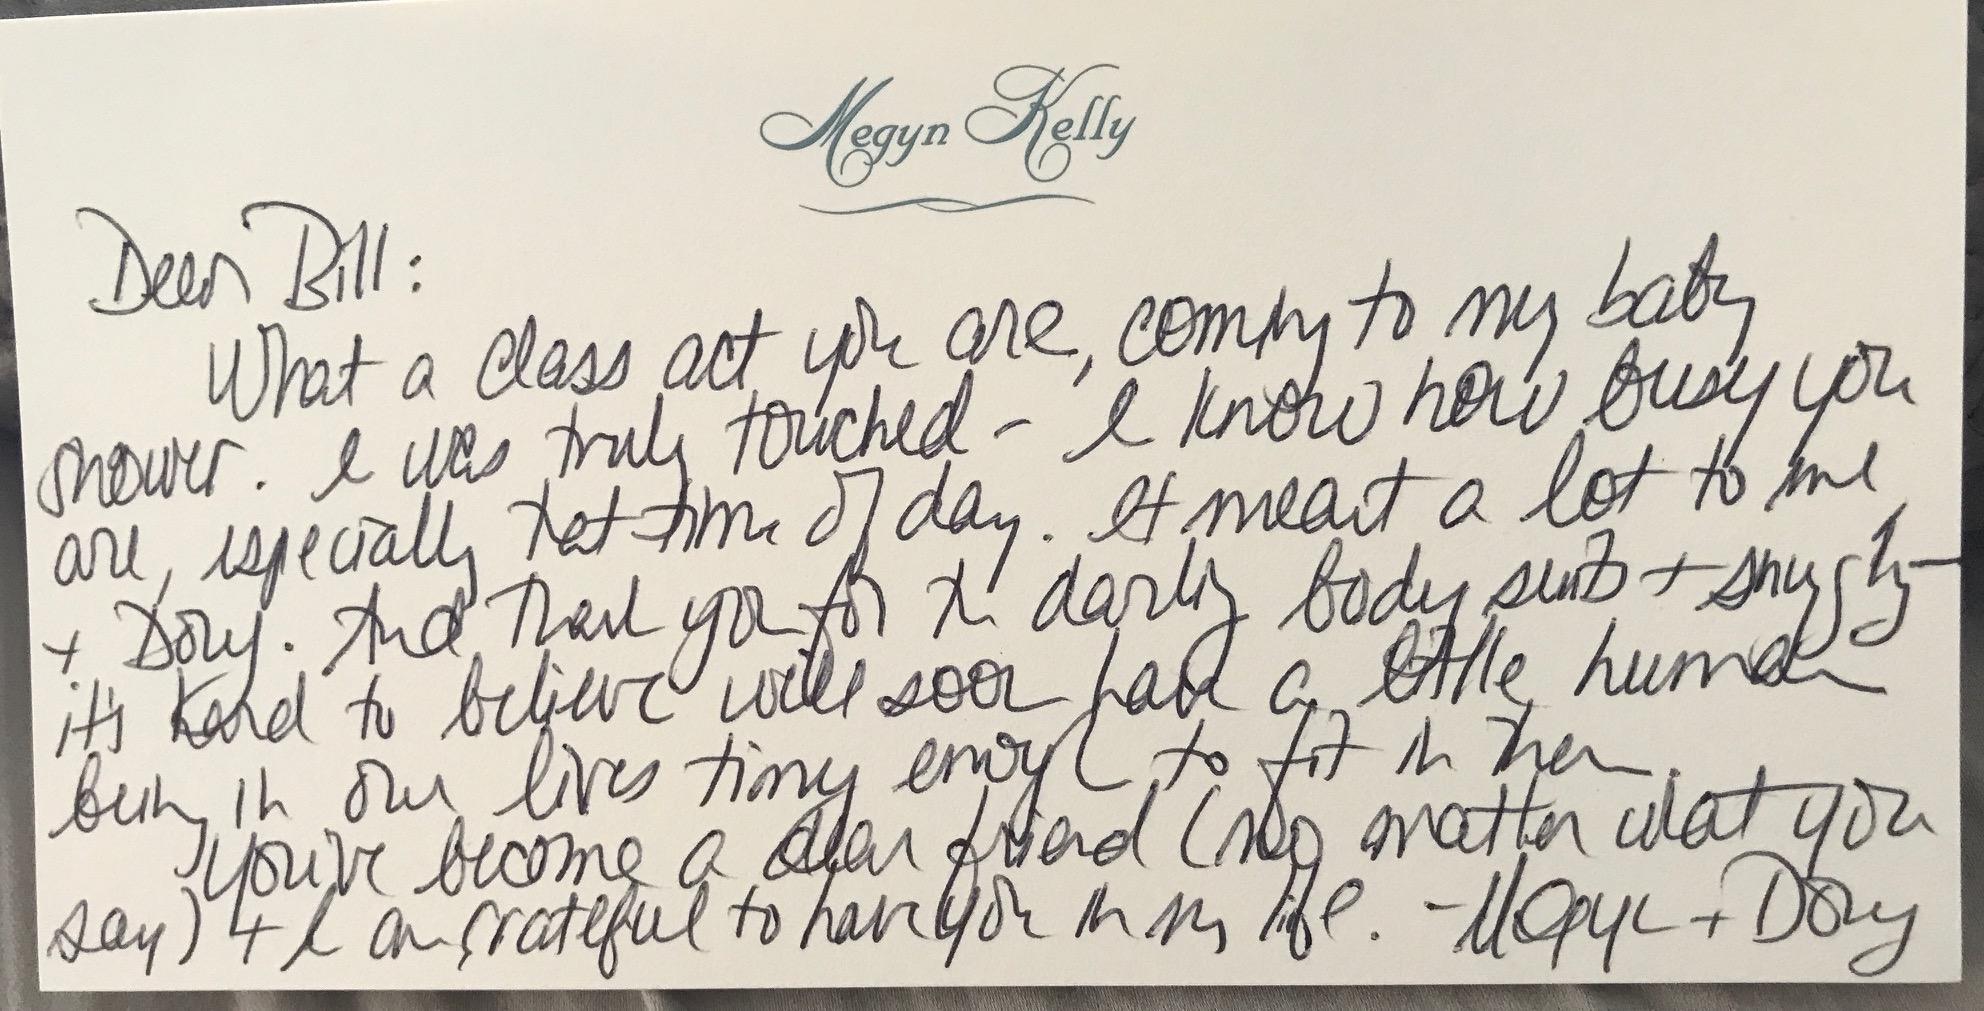 Megyn Kelly
Dear Bill:
What a class act you are, coming to my baby
shower. I was truly touched - I know how busy you
are, especially that time of day. It meant a lot to me
+ Doug. And thank you for the darling body suits + snuggly -
it's hard to believe we'll soon have a little human
being in our lives tiny enough to fit in them.
You've become a dear friend (no matter what you
say) + I am grateful to have you in my life. - Megyn + Doug